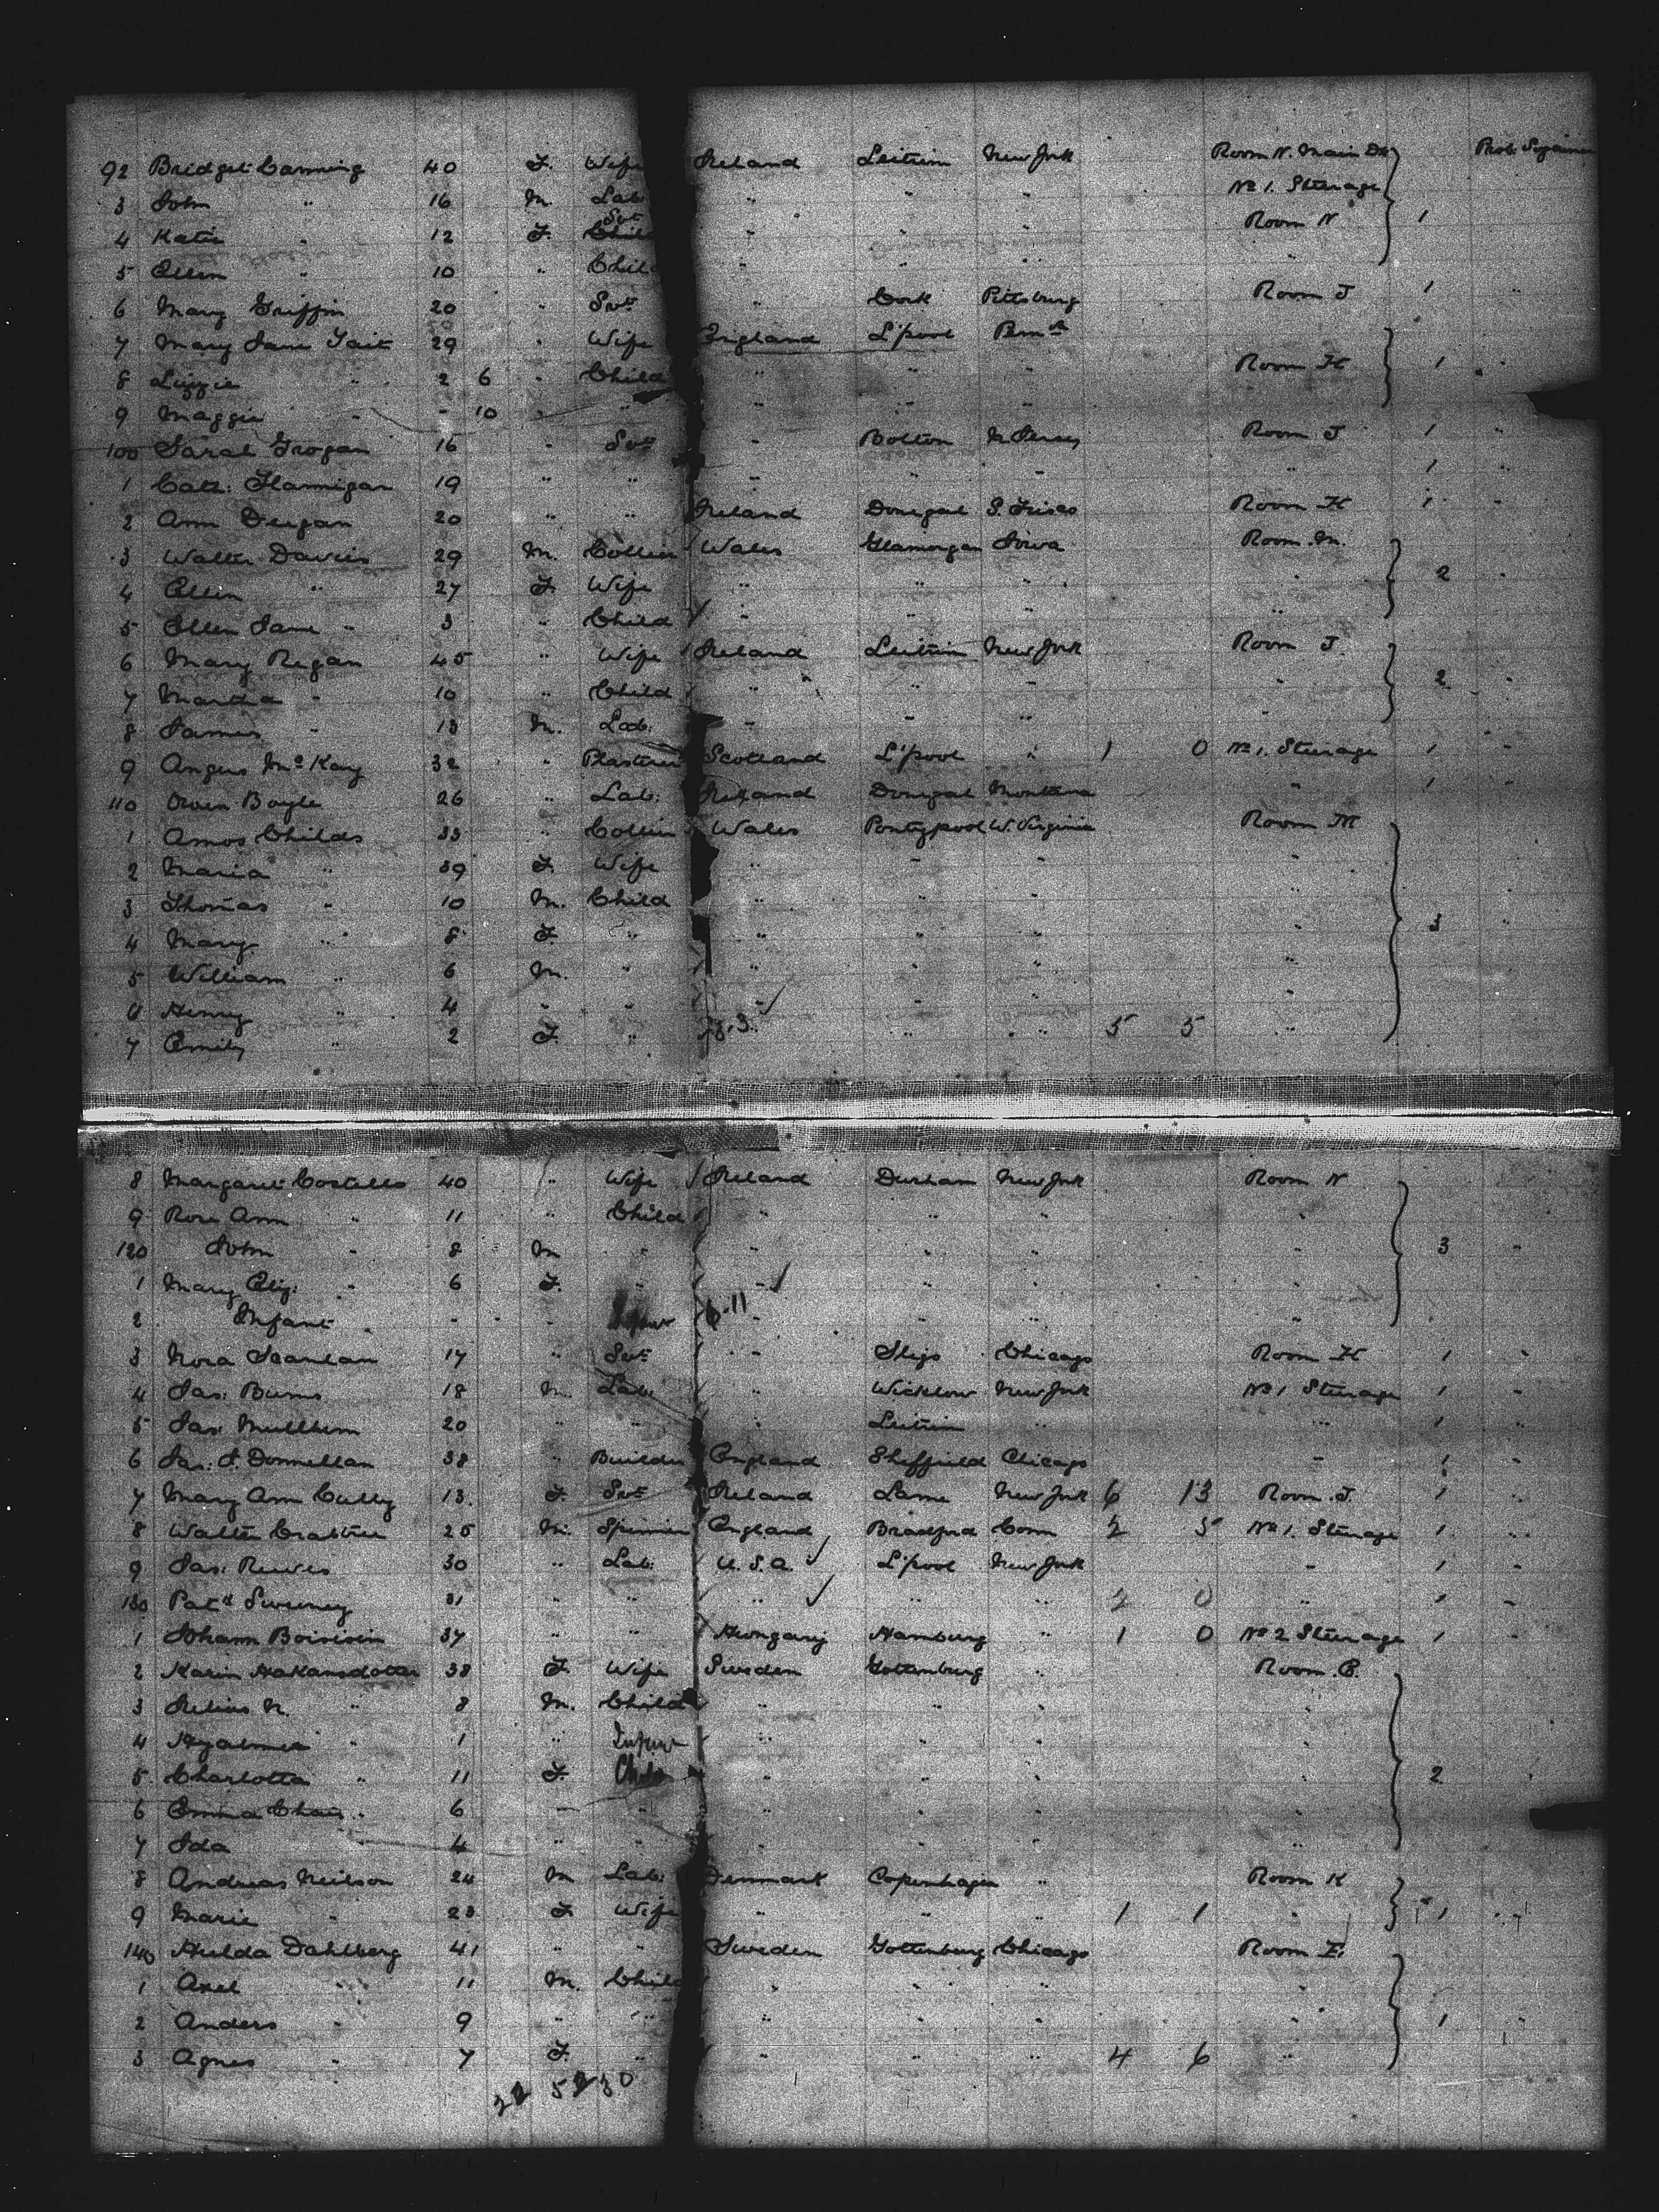 92 Bridget Canning 40 F. Wife Ireland Leitrim New York Room N. Main Dk
3 John " 16 M. Lab " " " No 1. Steerage
4 Katie " 12 F. Svt " " " Room N 1
5 Ellen " 10 " Child " " " "
6 Mary Griffin 20 " Svt " Cork Pittsburg Room J 1 "
7 Mary Jane Tait 29 " Wife England L'pool Penna
8 Lizzie " 2 6 " Child " " " Room K 1 "
9 Maggie " - 10 " " " " "
100 Sarah Grogan 16 " Svt " Bolton N. Jersey Room J 1 "
1 Cath: Flannigan 19 " " " " " " 1 "
2 Ann Deugan 20 " " Ireland Donegal S. Frisco Room K 1 "
3 Walter Davies 29 M. Collier Wales Glamorgan Iowa Room M.
4 Ellen " 27 F. Wife " " " " 2 "
5 Ellen Jane " 3 " Child " " " "
6 Mary Regan 45 " Wife Ireland Leitrim New York Room J.
7 Martha " 10 " Child " " " " 2 "
8 James " 13 M. Lab. " " " "
9 Angus McKay 32 " Plasterer Scotland L'pool " 1 0 No 1. Steerage 1 "
110 Owen Boyle 26 " Lab. Ireland Donegal Montana " 1
1 Amos Childs 33 " Collier Wales Pontypool W. Virginia Room M
2 Maria " 39 F. Wife " " " "
3 Thomas " 10 M. Child " " " "
4 Mary " 8 F. " " " " " 3 "
5 William " 6 M. " " " " "
6 Henry " 4 " " " " " "
7 Emily " 2 F. " " " 5 5 "
8 Margaret Costello 40 " Wife Ireland Durham New York Room N
9 Rose Ann " 11 " Child " " " "
120 John " 8 M " " " " " 3 "
1 Mary Eliz: " 6 F. " " " " "
2 Infant " - - " " " " "
3 Nora Scanlan 17 " Svt " Sligo Chicago Room K 1 "
4 Jas: Burns 18 M. Lab. " Wicklow New York No 1 Steerage 1 "
5 Jas: Mullhern 20 " " " Leitrim " " 1 "
6 Jas: J. Donnellan 38 " Builder England Sheffield Chicago " 1 "
7 Mary Ann Cully 13. F. Svt Ireland Larne New York 6 13 Room J. 1 "
8 Walter Crabtree 25 M. Spinner England Bradford Conn 2 5 No 1. Steerage 1 "
9 Jas: Reeves 30 " Lab. U.S.A. L'pool New York " 1 "
130 Patk Sweeney 31 " " " " " 2 0 " 1 "
1 Johann 37 " " Hungary Hamburg " 1 0 No 2 Steerage 1 "
2 Karin Hakansdotter 38 F. Wife Sweden Gottenburg " Room
3 N. " 8 M. Child " " " "
4 " 1 " Infant " " " "
5 Charlotta " 11 F. Child " " " " 2 "
6 Emma " 6 " " " " " "
7 Ida 4 " " " " " "
8 Andreas Neilson 24 M Lab. Denmark Copenhagen " Room K
9 Marie " 23 F. Wife " " " 1 1 " 1 "
140 Hulda Dahlberg 41 " " Sweden Gottenburg Chicago Room
1 Axel " 11 M. Child " " " "
2 Anders " 9 " " " " " " 1 "
3 Agnes " 7 F. " " " " 4 6 "